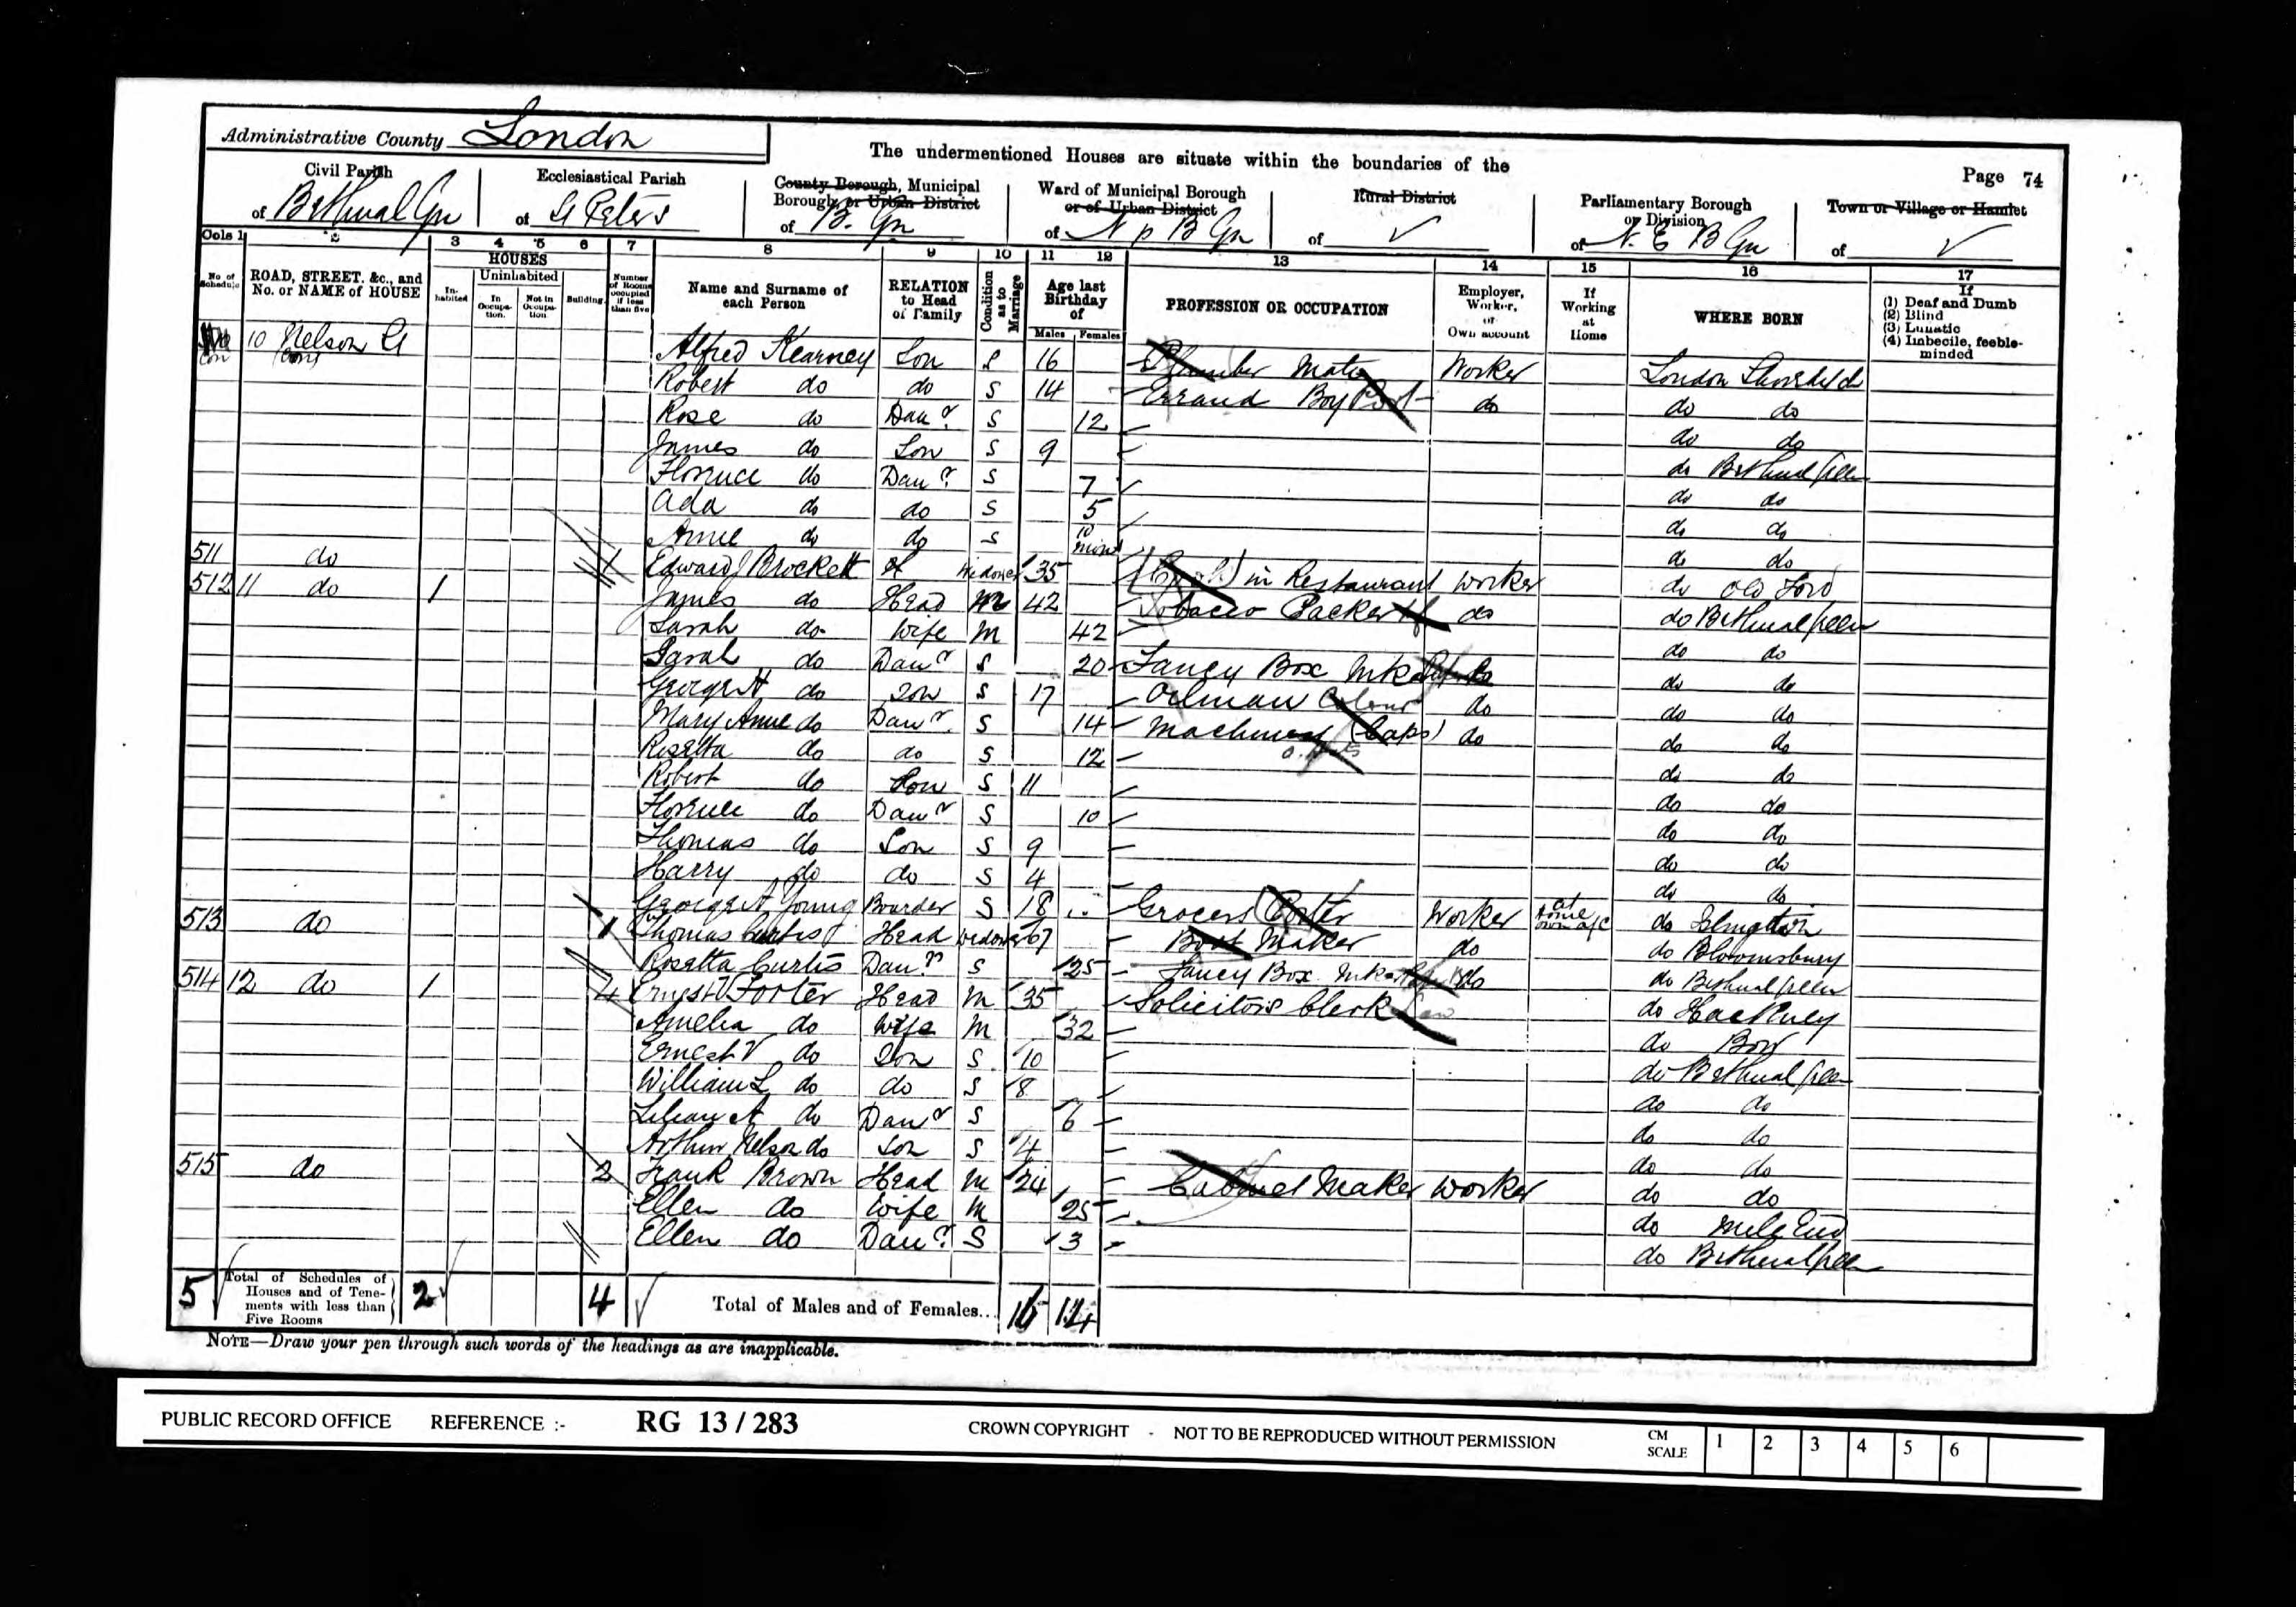 Administrative County London
The undermentioned Houses are situate within the boundaries of the
Page 74
Civil Parish of Bethnal Gn
Ecclesiastical Parish of St Peters
County Borough, Municipal Borough, or Urban District of B. Gn
Ward of Municipal Borough or of Urban District of N B Gn
Rural District of ✓
Parliamentary Borough or Division of N. E B Gn
Town or Village or Hamlet of ✓
Cols 1 2 3 4 5 6 7 8 9 10 11 12 13 14 15 16 17
No. of Schedule
ROAD, STREET, &c., and No. or NAME of HOUSE
HOUSES
Inhabited
Uninhabited
In Occupation.
Not in Occupation
Building.
Number of Rooms occupied if less than five
Name and Surname of each Person
RELATION to Head of Family
Condition as to Marriage
Age last Birthday of
Males Females
PROFESSION OR OCCUPATION
Employer, Worker, or Own account
If Working at Home
WHERE BORN
If
(1) Deaf and Dumb
(2) Blind
(3) Lunatic
(4) Imbecile, feeble-minded
con 10 Nelson St (con) Alfred Kearney Son S 16 Plumber Mate Worker London Shoreditch
Robert do do S 14 Errand Boy Port do do do
Rose do Daur S 12 do do
James do Son S 9 do Bethnal Green
Florence do Daur S 7 do do
Ada do do S 5 do do
Annie do do S 10 mons do do
511 do 1 Edward J Brockett Widower 35 in Restaurant Worker do Old Ford
512 11 do 1 James do Head M 42 Tobacco Packer do do Bethnal Green
Sarah do Wife M 42 do do
Sarah do Daur S 20 Fancy Box Mkr do do
George H do Son S 17 Oilman Colour do do do
Mary Anne do Daur S 14 Machinist (Caps) do do do
Rosetta do do S 12 do do
Robert do Son S 11 do do
Florence do Daur S 10 do do
Thomas do Son S 9 do do
Harry do do S 4 do do
George A Young Boarder S 18 Grocers Porter Worker do Islington
513 do 1 Thomas Curtis Head Widower 67 Boot Maker do at home own a/c do Bloomsbury
Rosetta Curtis Daur S 25 Fancy Box Mkr do do Bethnal Green
514 12 do 1 4 Ernest V Forter Head M 35 Solicitors Clerk Law do Hackney
Amelia do Wife M 32 do Bow
Ernest V do Son S 10 do Bethnal Green
William L do do S 8 do do
Lilian A do Daur S 6 do do
Arthur Nelson do Son S 4 do do
515 do 2 Frank Brown Head M 24 Cabinet Maker Worker do do
Ellen do Wife M 25 do Mile End
Ellen do Daur S 3 do Bethnal Green
5 Total of Schedules of Houses and of Tenements with less than Five Rooms 2 4 Total of Males and of Females... 16 14
NOTE—Draw your pen through such words of the headings as are inapplicable.
PUBLIC RECORD OFFICE REFERENCE :- RG 13 / 283 CROWN COPYRIGHT - NOT TO BE REPRODUCED WITHOUT PERMISSION CM SCALE 1 2 3 4 5 6